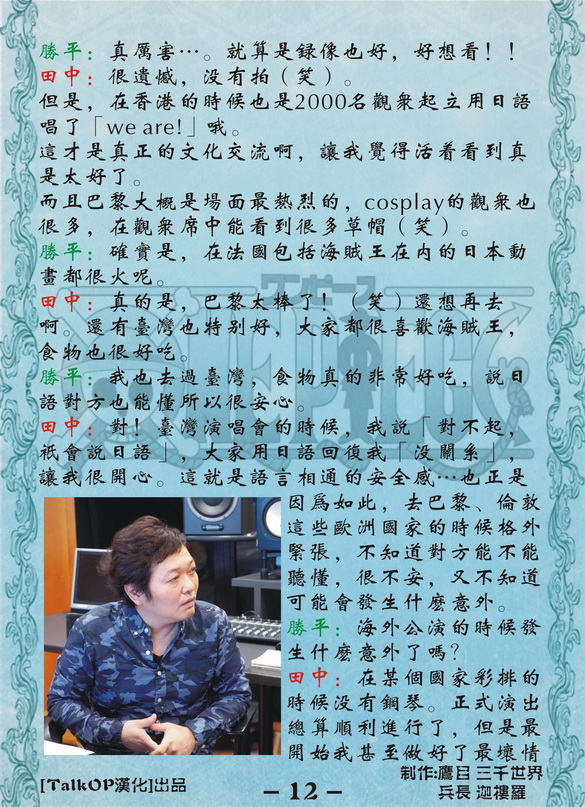 勝平：真厲害…。就算是録像也好，好想看！！
田中：很遺憾，没有拍（笑）。
但是，在香港的時候也是2000名觀衆起立用日語
唱了「we are!」哦。
這才是真正的文化交流啊，讓我覺得活着看到真
是太好了。
而且巴黎大概是場面最熱烈的，cosplay的觀衆也
很多，在觀衆席中能看到很多草帽（笑）。
勝平：確實是，在法國包括海賊王在内的日本動
畫都很火呢。
田中：真的是，巴黎太棒了！（笑）還想再去
啊。還有臺灣也特别好，大家都很喜歡海賊王，
食物也很好吃。
勝平：我也去過臺灣，食物真的非常好吃，説日
語對方也能懂所以很安心。
田中：對！臺灣演唱會的時候，我説「對不起，
衹會説日語」，大家用日語回復我「没關系」，
讓我很開心。這就是語言相通的安全感…也正是
因爲如此，去巴黎、倫敦
這些歐洲國家的時候格外
緊張，不知道對方能不能
聽懂，很不安，又不知道
可能會發生什麽意外。
勝平：海外公演的時候發
生什麽意外了嗎？
田中：在某個國家彩排的
時候没有鋼琴。正式演出
總算順利進行了，但是最
開始我甚至做好了最壞情
[TalkOP漢化]出品
－12－
制作:鷹目 三千世界
兵長 迦樓羅
ワンピース